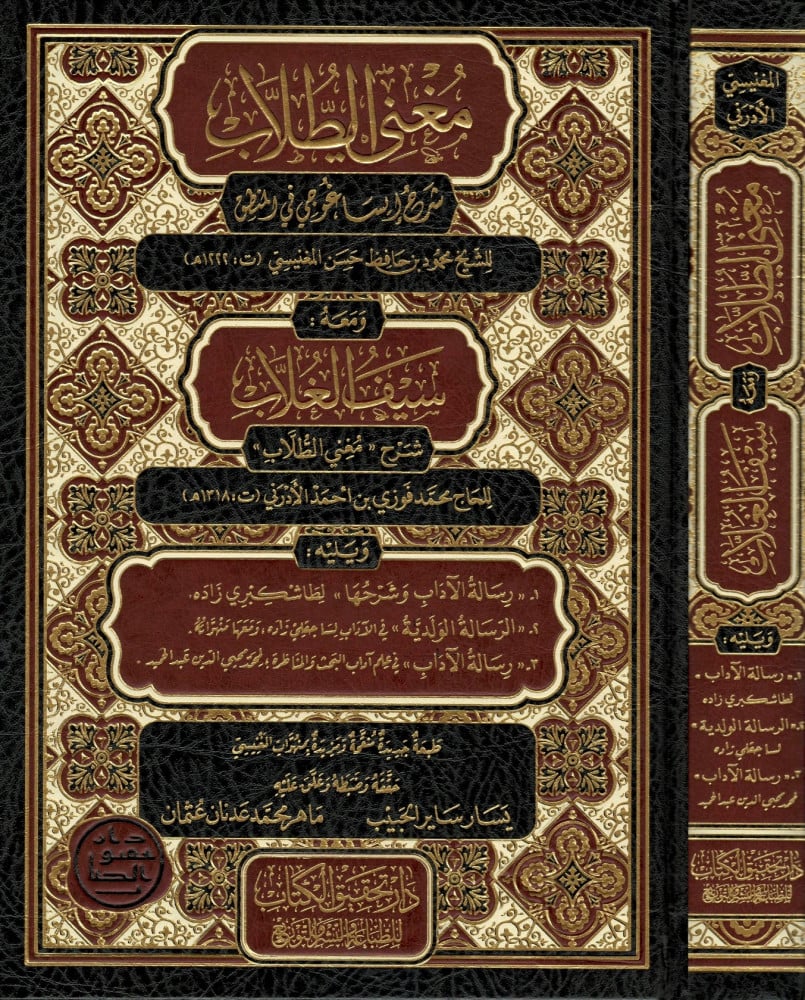 مُغْنِي الطُّلَّابِ
شَرْحُ إِيسَاغُوجِي فِي المَنْطِقِ
لِلشَّيْخِ مَحْمُود بْن حَافِظ حَسَن المَغْنِيسِيّ (ت: ١٢٢٢هـ)
وَمَعَهُ:
سَيْفُ الغُلَّابِ
شَرْح «مُغْنِي الطُّلَّابِ»
لِلحَاج مُحَمَّد فَوْزِي بن أَحْمَدْ الأَدْرَنِي (ت: ١٣١٨هـ)
وَيَلِيْه:
١. «رِسَالَةُ الآدَابِ وَشَرْحُهَا» لِطَاشْكُبْرِي زَادَه.
٢. «الرِّسَالَةُ الوَلَدِيَّةُ» في الآدَابِ لسَاجقلي زَادَه، وَمَعَهَا مَنْهُوَاتُهُ.
٣. «رِسَالَةُ الآدَابِ» في عِلم آدَابِ البَحْثِ وَالمُنَاظَرَة؛ لمحمد محيي الدين عَبد الحميد.
طَبْعَةٌ جَدِيدَةٌ مُنَقَّحَةٌ وَمَزِيدَةٌ بِمَنْهُوَاتِ المَغْنِيسِيّ
حَقَّقَهُ وَضَبَطَهُ وَعَلَّقَ عَلَيْهِ
يَسَار سَايِر الحَبِيْب
مَاهِر مُحَمَّد عَدْنَان عُثْمَان
دار
دَارُ تَحْقِيقِ الكِتَابِ
لِلطِّبَاعَةِ وَالنَّشْرِ وَالتَّوْزِيعِ
المَغْنِيسِيّ
الأَدْرَنِي
مُغْنِي الطُّلَّابِ
سَيْفُ الغُلَّابِ
وَيَلِيْه:
١. «رسالة الآداب»
لطاشكبري زاده
٢. «الرسالة الولدية»
لساجقلي زاده
٣. «رسالة الآداب»
لمحمد محيي الدين عبد الحميد
دَارُ تَحْقِيقِ الكِتَابِ
لِلطِّبَاعَةِ وَالنَّشْرِ وَالتَّوْزِيعِ